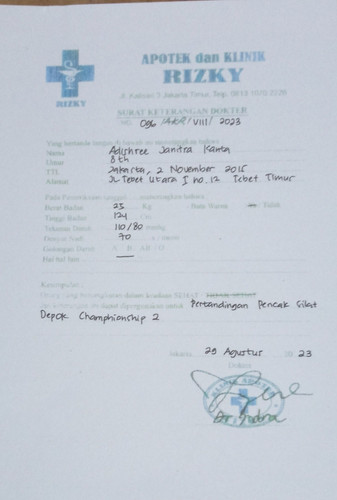 APOTEK dan KLINIK
RIZKY
RIZKY
Jl. Kalisari 7 Jakarta Timur, Telp.
SURAT KETERANGAN DOKTER
NO. 096 / / VIII / 2023
Yang bertanda tangan di bawah ini menerangkan bahwa
Nama Adishree Janitra Kanta
Umur 8th
TTL Jakarta, 2 November 2015
Alamat JL Tebet Utara I no.12 Tebet Timur
Pada Pemeriksaan menerangkan bahwa
Berat Badan 23 Kg Buta Warna Ya/Tidak
Tinggi Badan 124 Cm
Tekanan Darah 110/80 mmHg
Denyut Nadi 70
Golongan Darah A B AB O
Hal hal lain —
Kesimpulan :
Orang yang berkepentingan dalam keadaan SEHAT /
dipergunakan untuk Pertandingan Pencak Silat
Depok Champhionship 2
Jakarta 29 Agustus 20 23
Dokter
APOTEK
RIZKY
Dr Indra